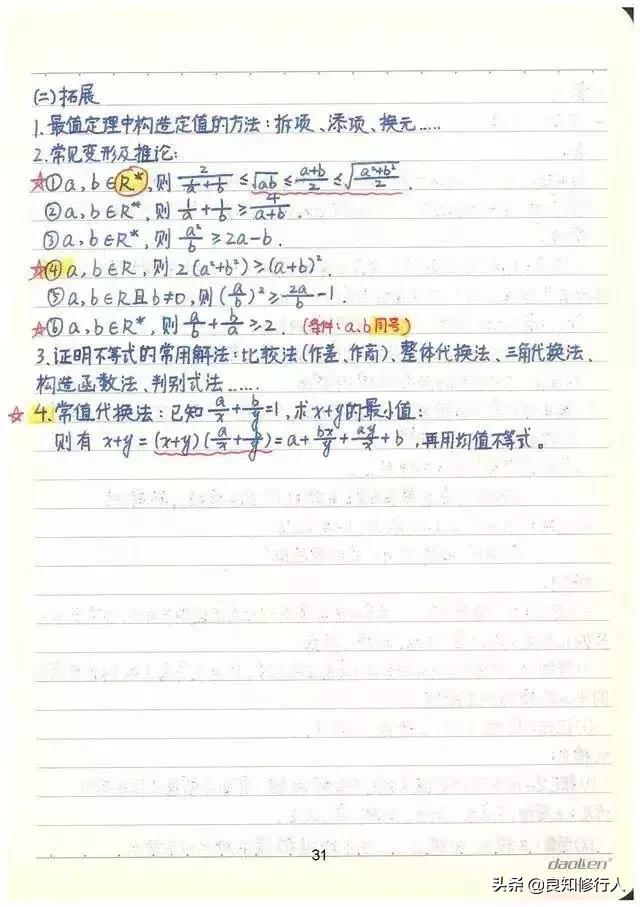 (二)拓展
1.最值定理中构造定值的方法:拆项、添项、换元……
2.常见变形及推论:
☆①a,b∈R*,则 2/(1/a+1/b) ≤ √ab ≤ (a+b)/2 ≤ √((a²+b²)/2) .
②a,b∈R*,则 1/a+1/b ≥ 4/(a+b) .
③a,b∈R*,则 a²/b ≥2a-b .
☆④a,b∈R,则 2(a²+b²)≥(a+b)² .
⑤a,b∈R且b≠0,则(a/b)² ≥ 2a/b -1 .
☆⑥a,b∈R*,则 a/b + b/a ≥2 . (条件:a,b同号)
3.证明不等式的常用解法:比较法(作差、作商)、整体代换法、三角代换法、
构造函数法、判别式法……
☆4.常值代换法:已知 a/x + b/y =1,求x+y的最小值:
则有 x+y = (x+y)(a/x + b/y) = a + bx/y + ay/x + b ,再用均值不等式。
31
daolen®
头条 @良知修行人